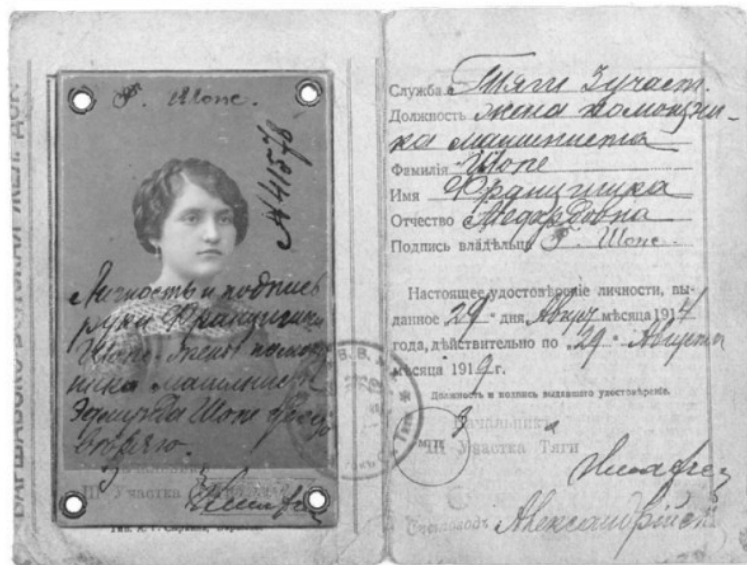 ВАРШАВСКО-ВѢНСКАЯ ЖЕЛ. ДОР.
Ф. Шопе.
№ 41578
Личность и подпись
руки Францишки
Шопе жены помощ
ника машиниста
Шопе
Начальникъ
III Участка Тяги
Служба Тяги 3 участ.
Должность жена помощни-
ка машиниста
Фамилія Шопе
Имя Францишка
Отчество Медардовна
Подпись владѣльца Ф. Шопе.
Настоящее удостовѣреніе личности, вы-
данное "29" дня Август мѣсяца 1914
года, дѣйствительно по "29" Августа
мѣсяца 1919 г.
Должность и подпись выдавшего удостовѣреніе.
Начальникъ
III Участка Тяги
Счетоводъ